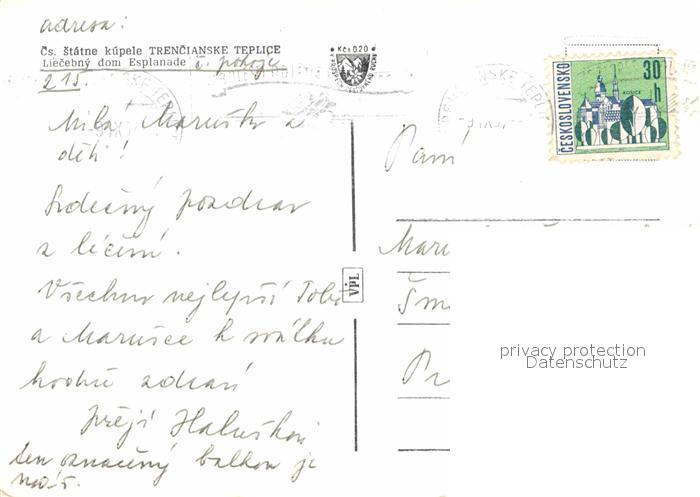 adresa:
Čs. štátne kúpele TRENČIANSKE TEPLICE
Liečebný dom Esplanade č. pokoje
215.
Kčs 0.20
ČESKOSLOVENSKO
30 h
KOŠICE
Milá Maruško a
děti!
Srdečný pozdrav
z léčení.
Všechno nejlepší Tobě
a Marušce k svátku
hodně zdraví
přejí Haluškovi
ten označený balkon je
náš.
VPL
Paní
Maru
Šm
Pr
privacy protection
Datenschutz